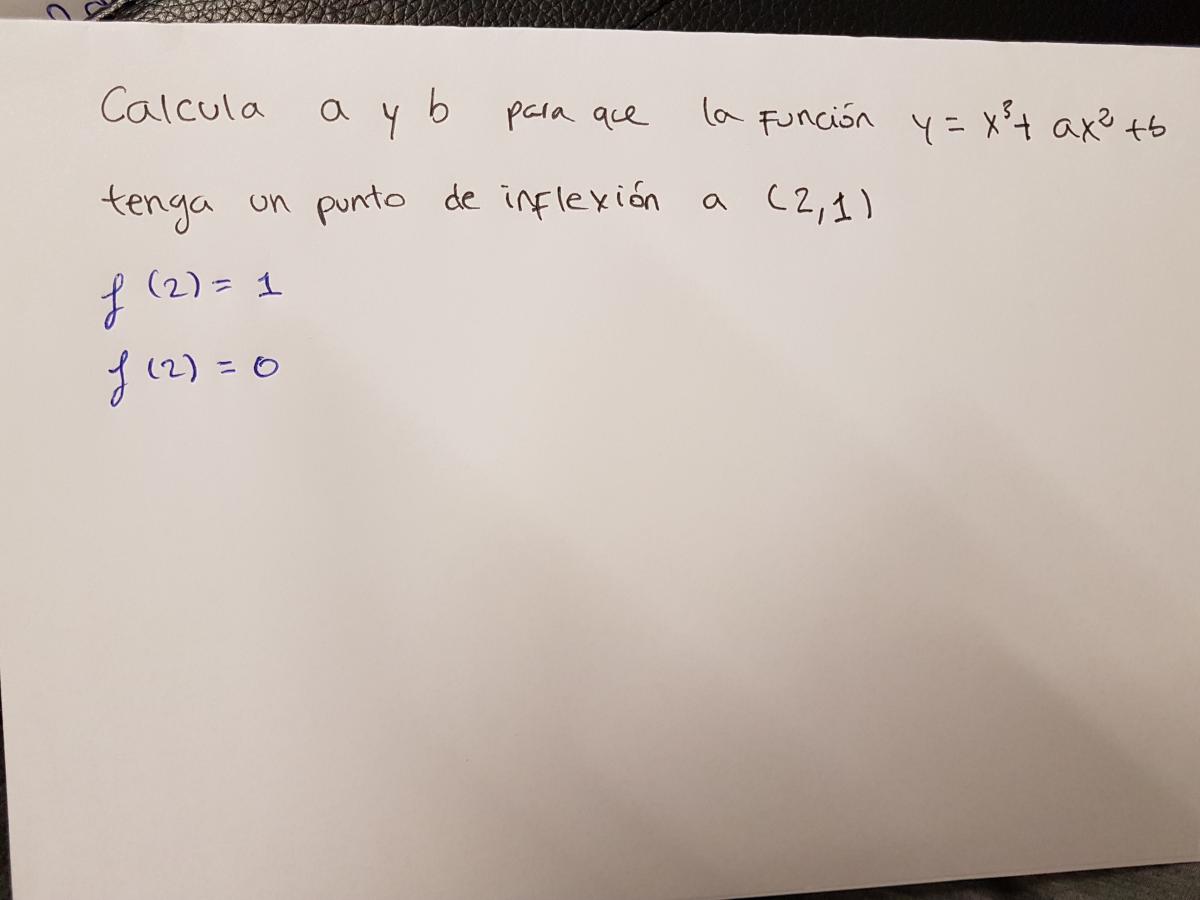 Calcula a y b para que la función y = x³ + ax² + b
tenga un punto de inflexión a (2,1)
f (2) = 1
f (2) = 0